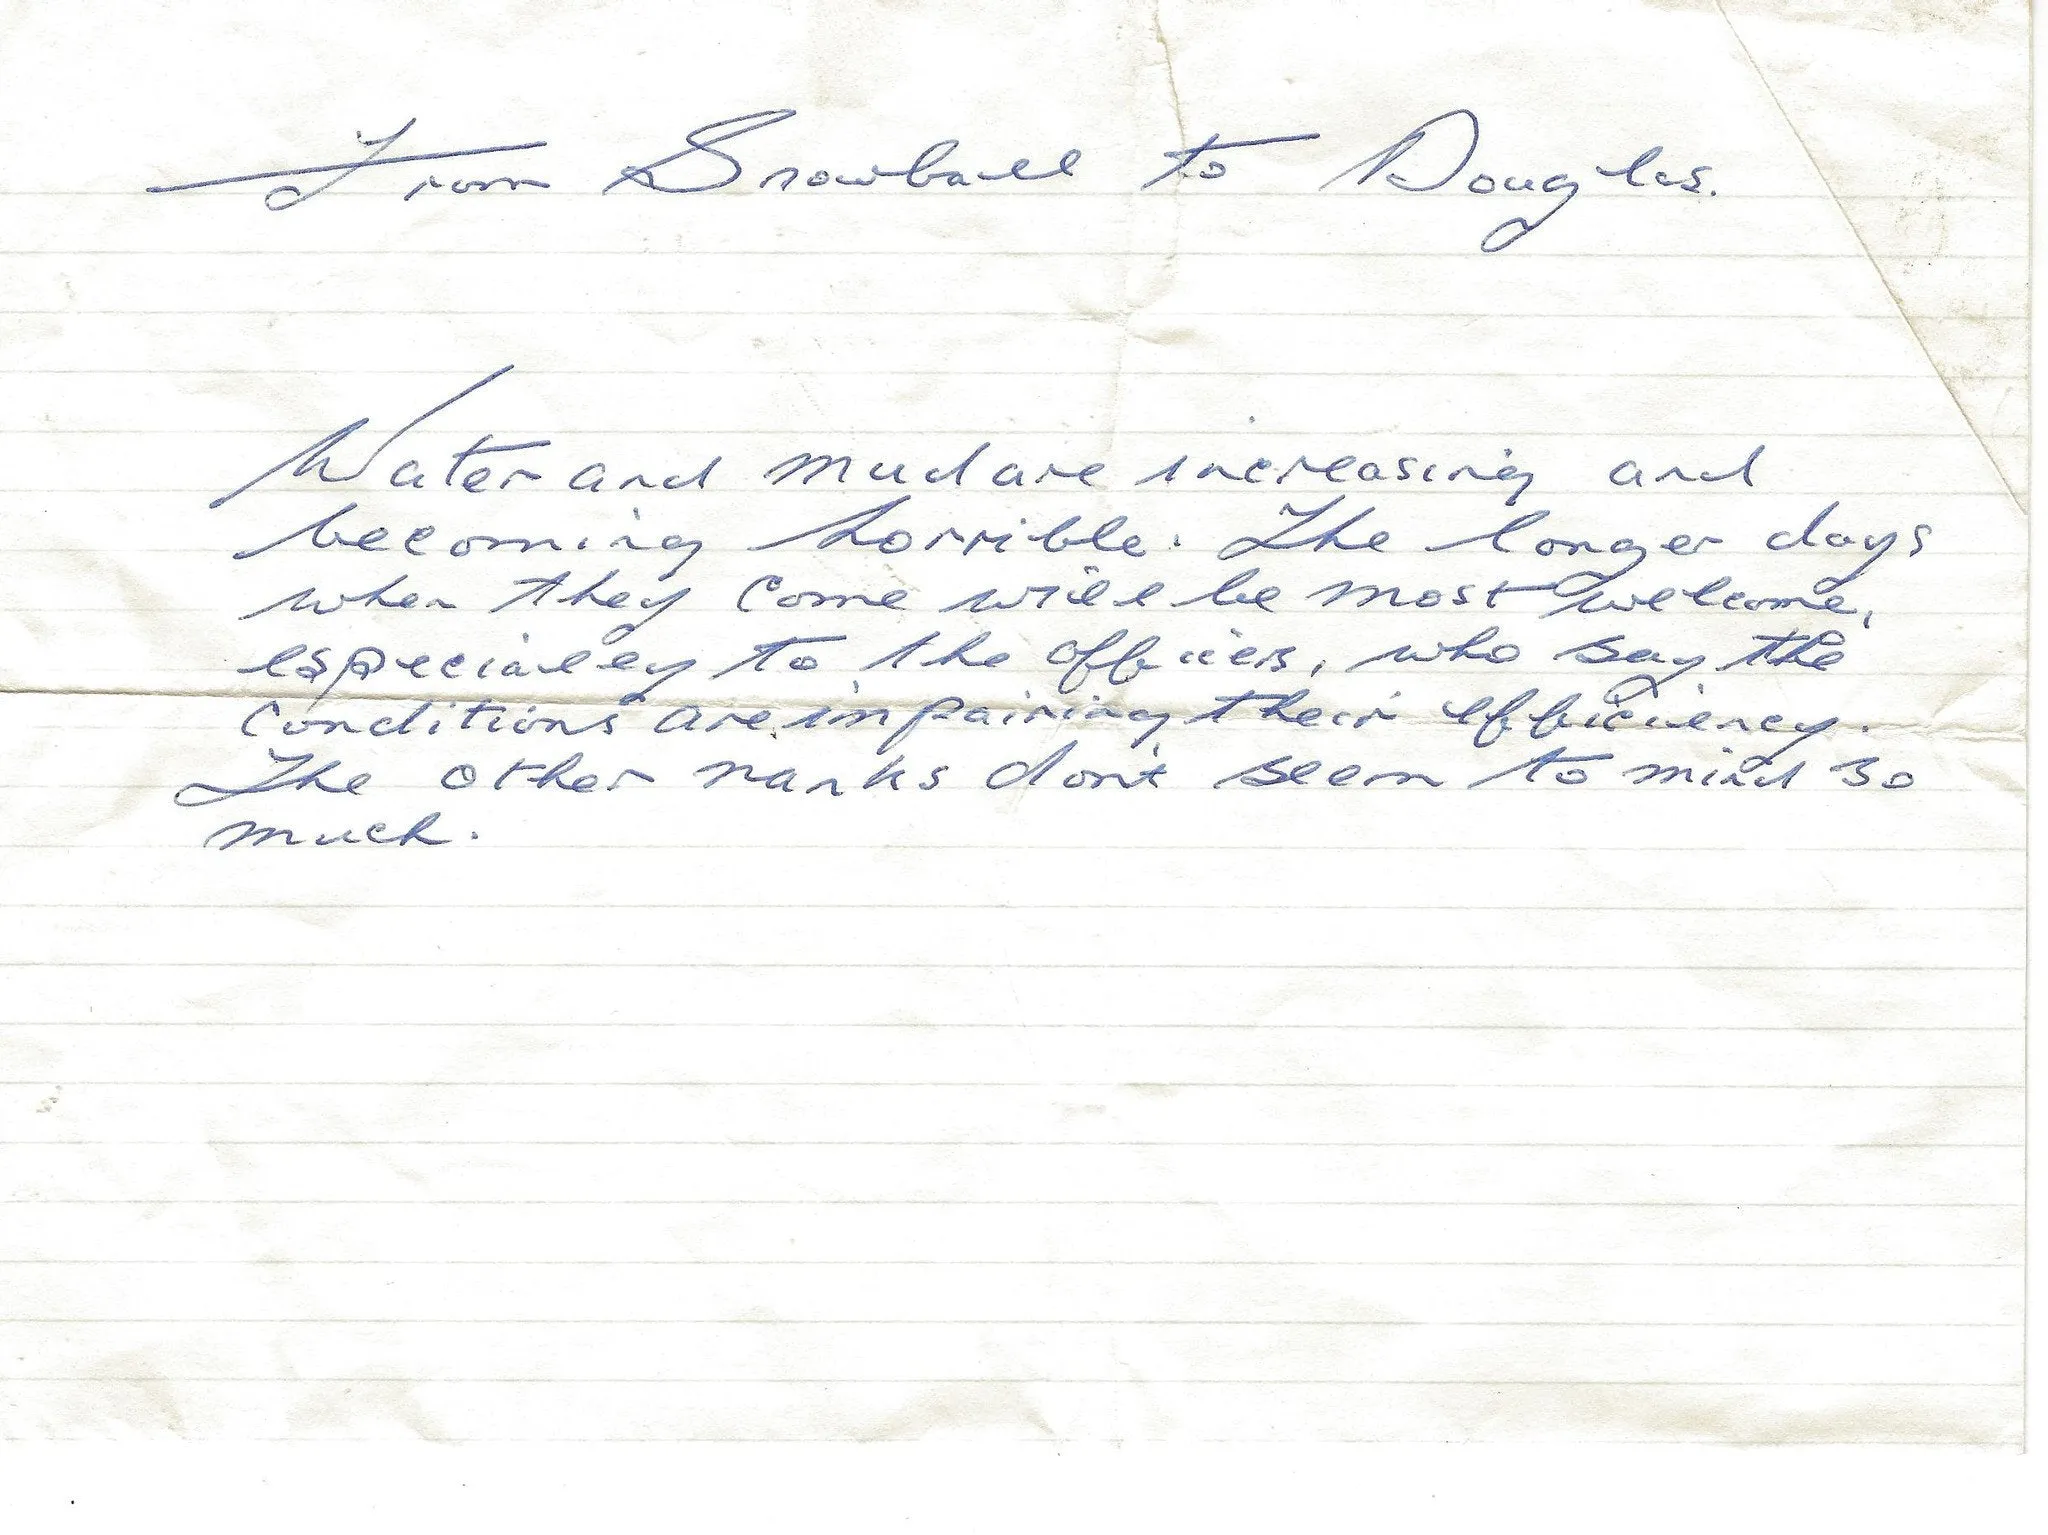 From Snowball to Douglas.
Water and mud are increasing and
becoming horrible. The longer days
when they come will be most welcome,
especially to the officers, who say the
conditions are impairing their efficiency.
The other ranks don't seem to mind so
much.